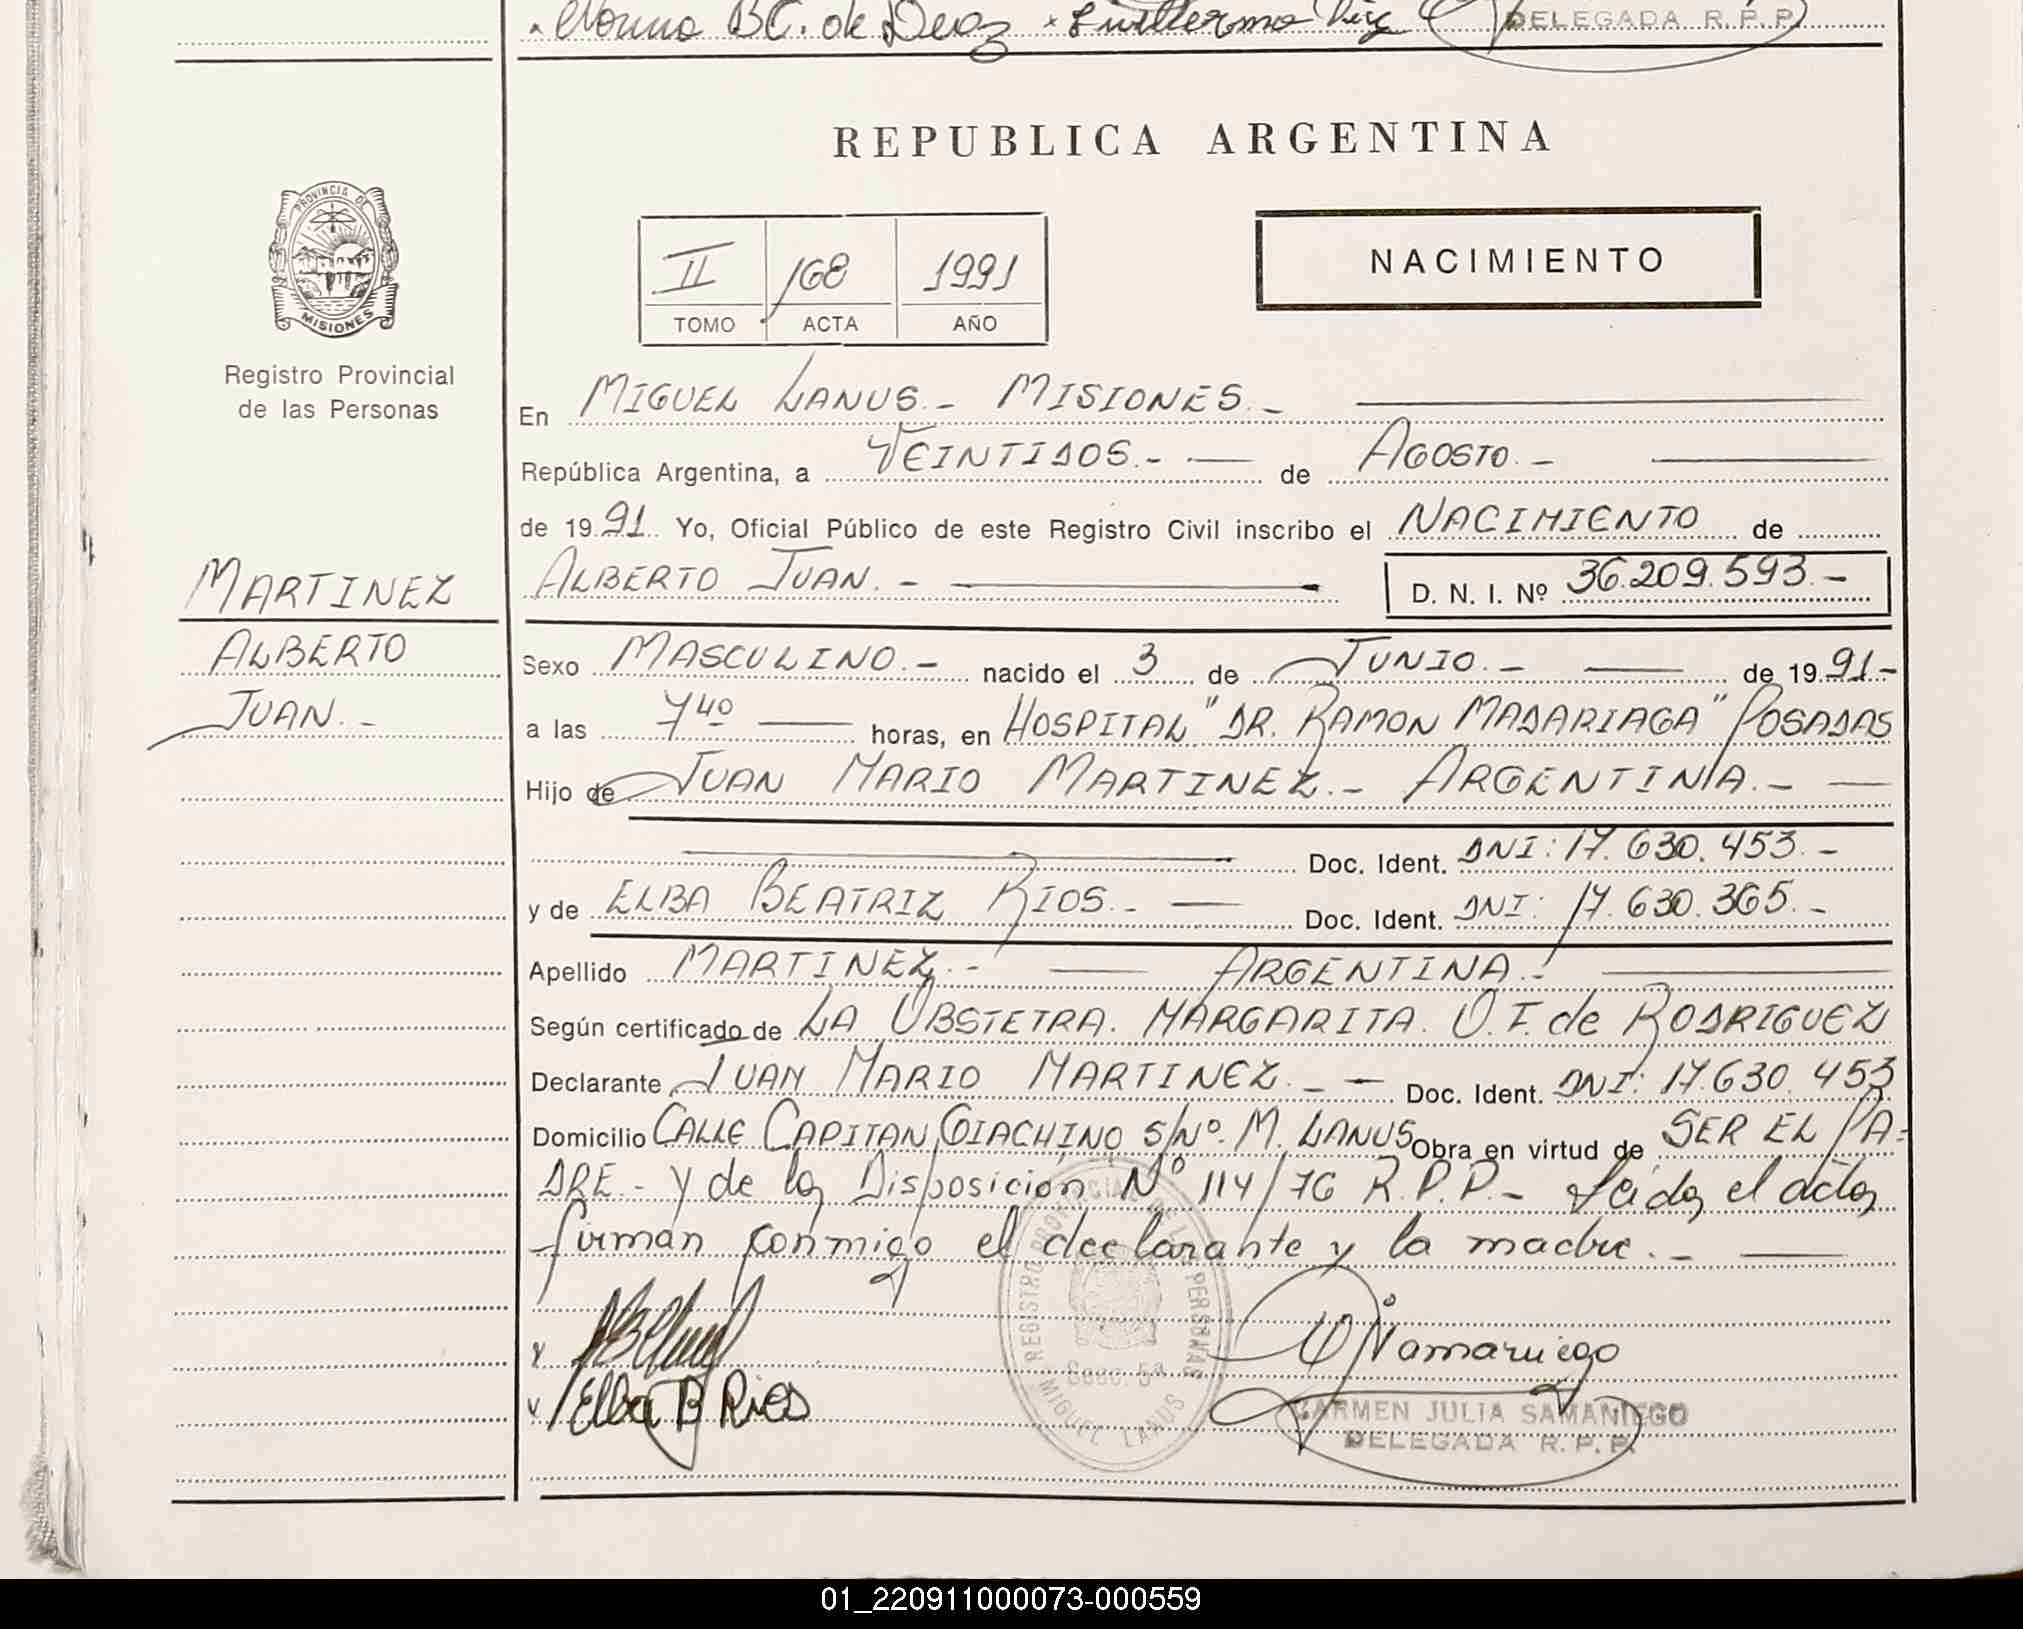 Norma B C. de Deaz × Guillermo Diaz
DELEGADA R. P. P.
REPUBLICA ARGENTINA
PROVINCIA DE
MISIONES
Registro Provincial
de las Personas
II 168 1991
TOMO ACTA AÑO
NACIMIENTO
En MIGUEL LANUS.- MISIONES.-
República Argentina, a VEINTIDOS.- de AGOSTO.-
de 1991. Yo, Oficial Público de este Registro Civil inscribo el NACIMIENTO de
MARTINEZ
ALBERTO
JUAN.-
ALBERTO JUAN.- D. N. I. Nº 36.209.593.-
Sexo MASCULINO.- nacido el 3 de JUNIO.- de 1991-
a las 7 40 horas, en HOSPITAL "DR. RAMON MADARIAGA" POSADAS
Hijo de JUAN MARIO MARTINEZ.- ARGENTINA.-
Doc. Ident. DNI: 17.630.453.-
y de ELBA BEATRIZ RIOS.- Doc. Ident. DNI: 17.630.365.-
Apellido MARTINEZ.- ARGENTINA.-
Según certificado de LA OBSTETRA. MARGARITA. O. F. de RODRIGUEZ
Declarante JUAN MARIO MARTINEZ.- Doc. Ident. DNI: 17.630.453
Domicilio CALLE CAPITAN GIACHINO S/Nº. M. LANUS Obra en virtud de SER EL PA-
DRE.- y de la Disposición Nº 114/76 R.P.P.- Leida el acta,
firman conmigo el declarante y la madre.-
x
x Elba B Rios
REGISTRO PROVINCIAL DE LAS PERSONAS
Secc. 5ª
MIGUEL LANUS
CJSamaniego
CARMEN JULIA SAMANIEGO
DELEGADA R. P. P.
01_220911000073-000559